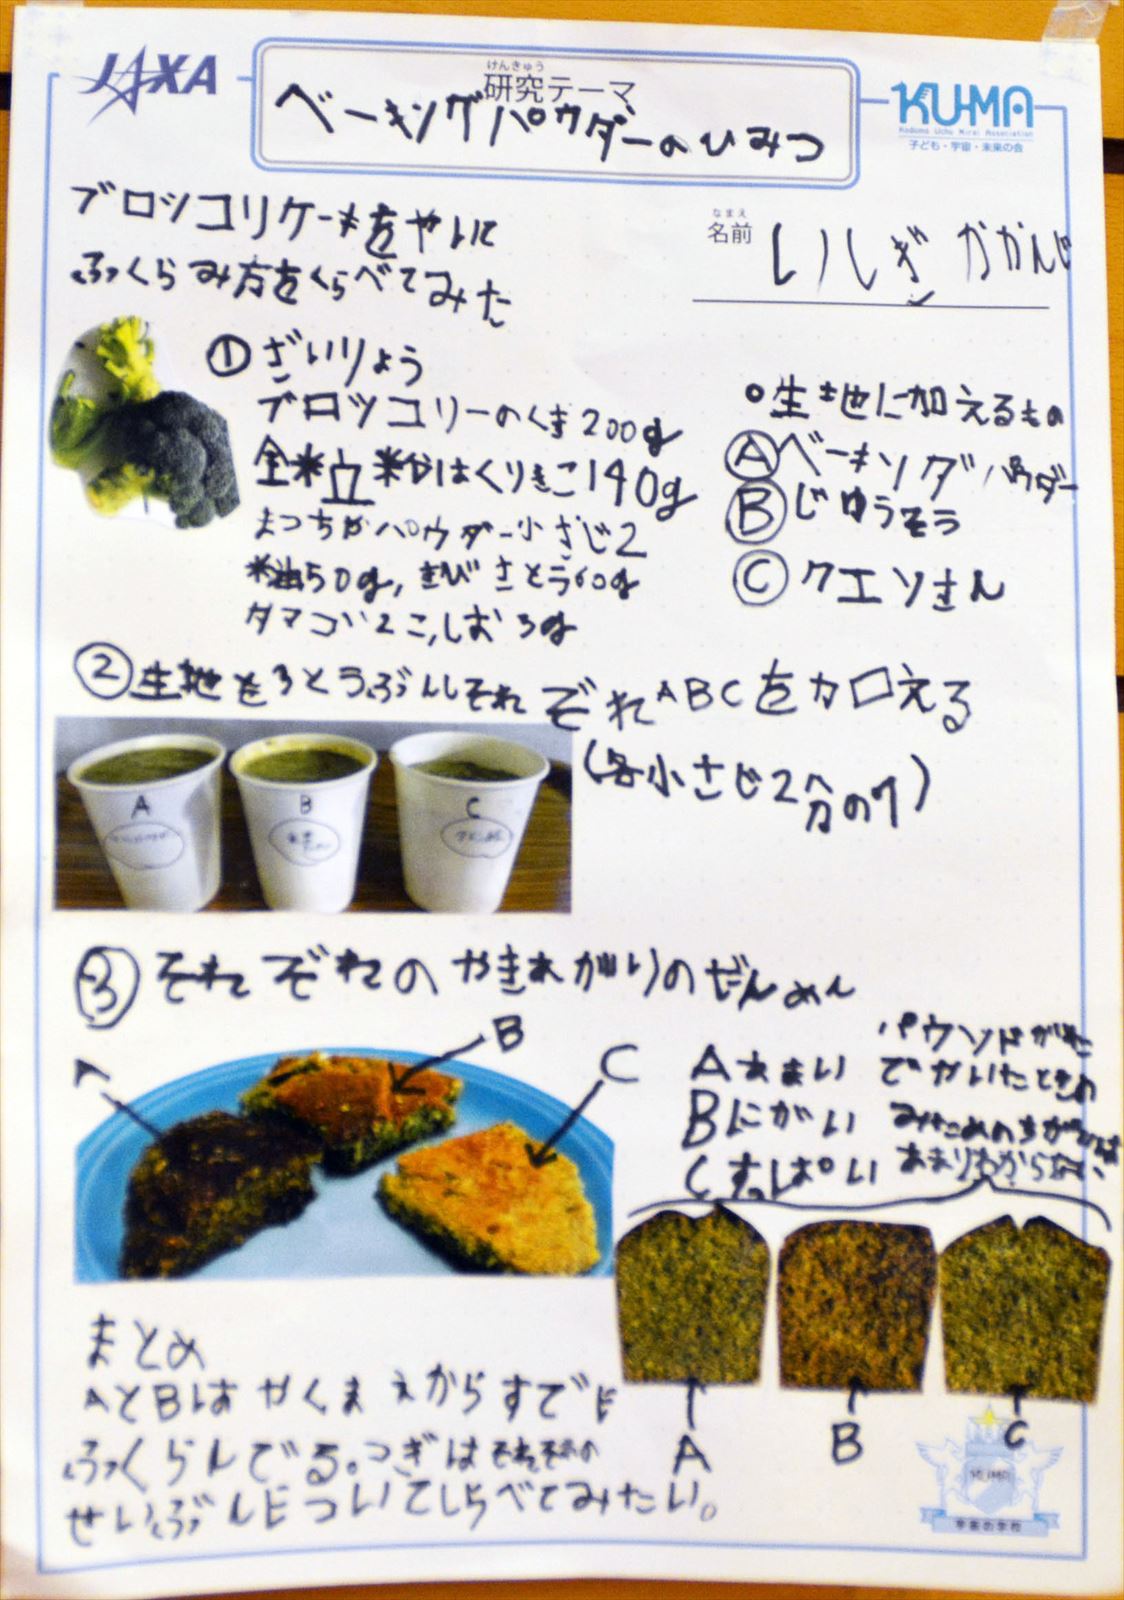 JAXA
けんきゅう
研究テーマ
ベーキングパウダーのひみつ
KU-MA
Kodomo Uchu Mirai Association
子ども・宇宙・未来の会
ブロッコリケーキをやいに
ふくらみ方をくらべてみた
なまえ
名前
①ざいりょう
ブロッコリーのくき200g
全粒粉はくりきこ140g
まっちゃパウダー小さじ2
米油50g,きびさとう60g
タマゴ2こ,しお3g
○生地に加えるもの
Ⓐベーキングパウダー
Ⓑじゅうそう
Ⓒクエンさん
②生地を3とうぶんしそれぞれABCを加える
(各小さじ2分の1)
A
B
C
③それぞれのやきあがりのだんめん
A
B
C
Aあまい
Bにがい
Cすっぱい
パウンドがた
でやいたときの
みためのちがいは
あまりわからない
A
B
C
まとめ
AとBはやくまえからすでに
ふくらんでる。つぎはそれぞれの
せいぶんについてしらべてみたい。
KU-MA
宇宙の学校